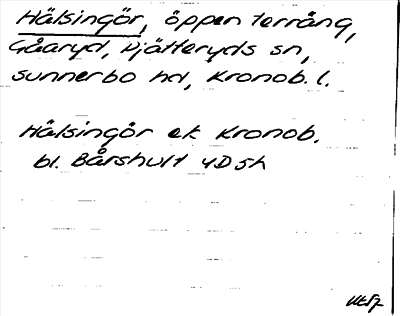 Hälsingör, öppen terräng,
Gåaryd, Djätteryds sn,
Sunnerbo hd, Kronob. l.
Hälsingör ek Kronob.
bl. Bårshult 4D5h